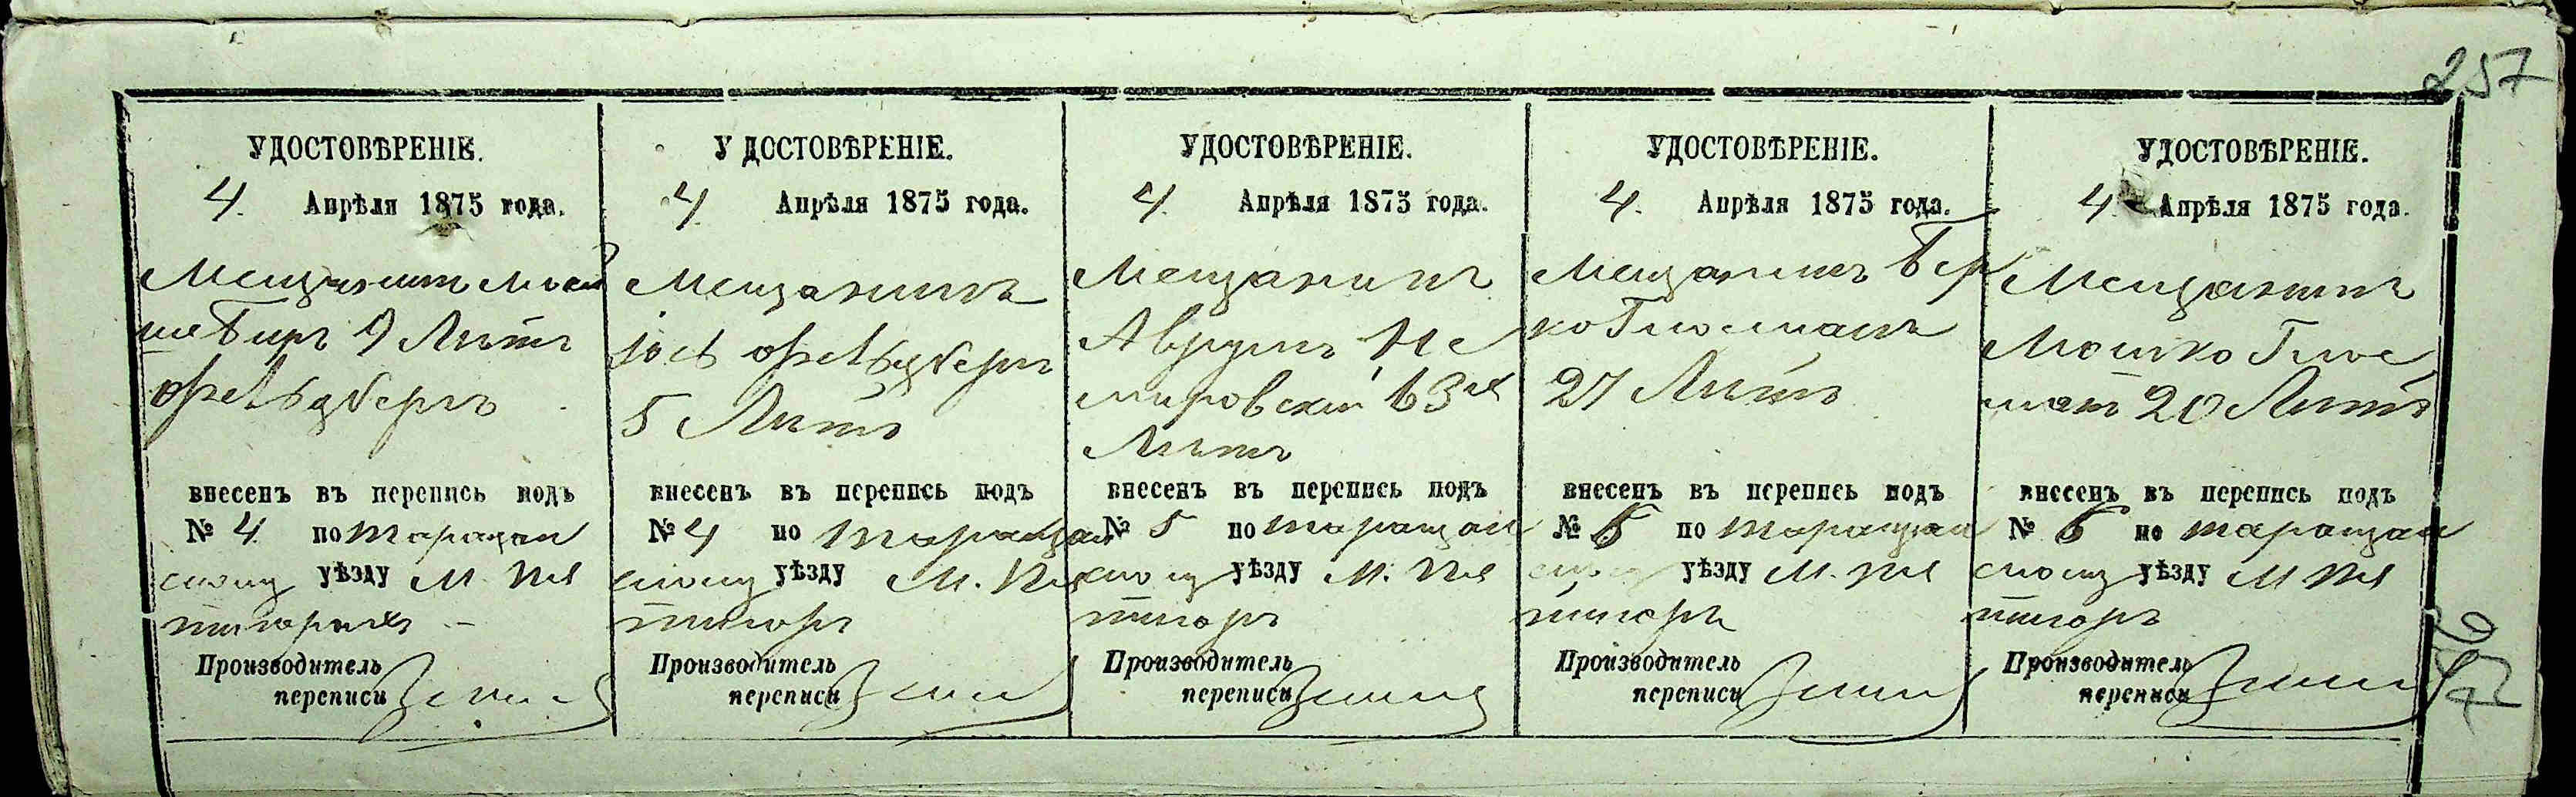 257
УДОСТОВѢРЕНІЕ.
4. Апрѣля 1875 года.
Мещанинъ
9 Лѣтъ
внесенъ въ перепись подъ
№ 4 по Таращан
скому уѣзду М. Пя
тигорахъ
Производитель
переписи
УДОСТОВѢРЕНІЕ.
4 Апрѣля 1875 года.
Мещанинъ
5 Лѣтъ
внесенъ въ перепись подъ
№ 4 по Таращан
скому уѣзду М. Пя
тигоръ
Производитель
переписи
УДОСТОВѢРЕНІЕ.
4. Апрѣля 1875 года.
Мещанинъ
Аврумъ Не
мировскій 63х
Лѣтъ
внесенъ въ перепись подъ
№ 5 по Таращан
скому уѣзду М. Пя
тигоръ
Производитель
переписи
УДОСТОВѢРЕНІЕ.
4. Апрѣля 1875 года.
Мещанинъ Бер
ко
27 Лѣтъ
внесенъ въ перепись подъ
№ 6 по Таращан
скому уѣзду М. Пя
тигоръ
Производитель
переписи
УДОСТОВѢРЕНІЕ.
4. Апрѣля 1875 года.
Мещанинъ
Мошко
20 Лѣтъ
внесенъ въ перепись подъ
№ 6 по Таращан
скому уѣзду М Пя
тигоръ
Производитель
переписи